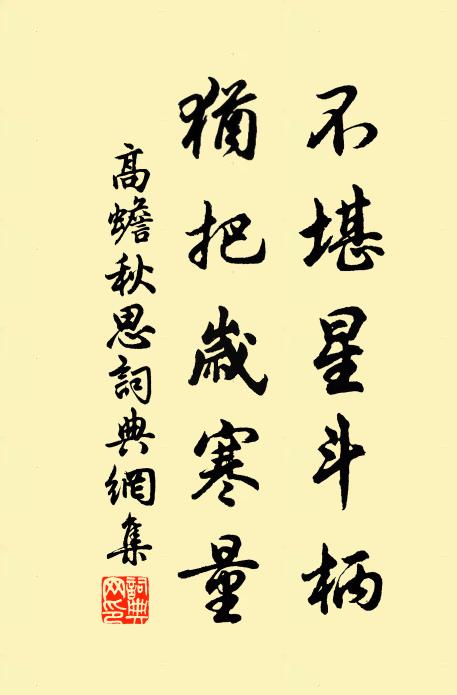 不堪星斗柄
猶把歲寒量
高蟾秋思詞典網集
詞典网印